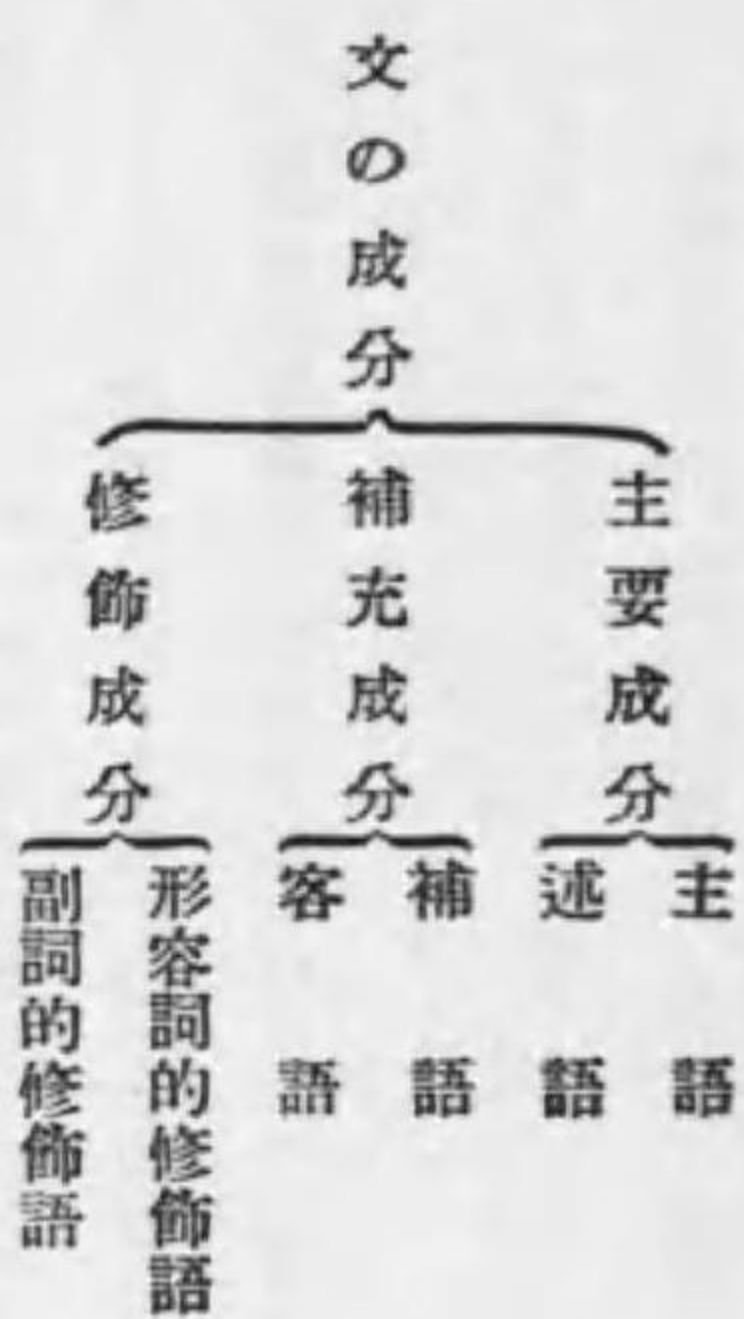 文の成分
主要成分
主語
述語
補充成分
補語
客語
修飾成分
形容詞的修飾語
副詞的修飾語